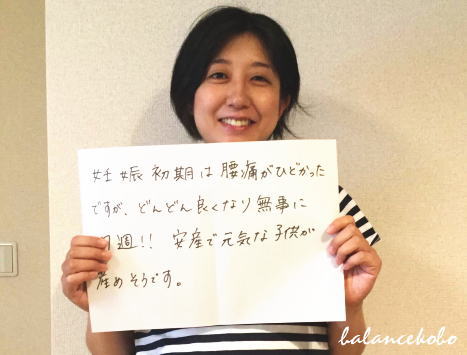 妊娠初期は腰痛がひどかった
ですが、どんどん良くなり無事に
週!! 安産で元気な子供が
産めそうです。
balancekobo